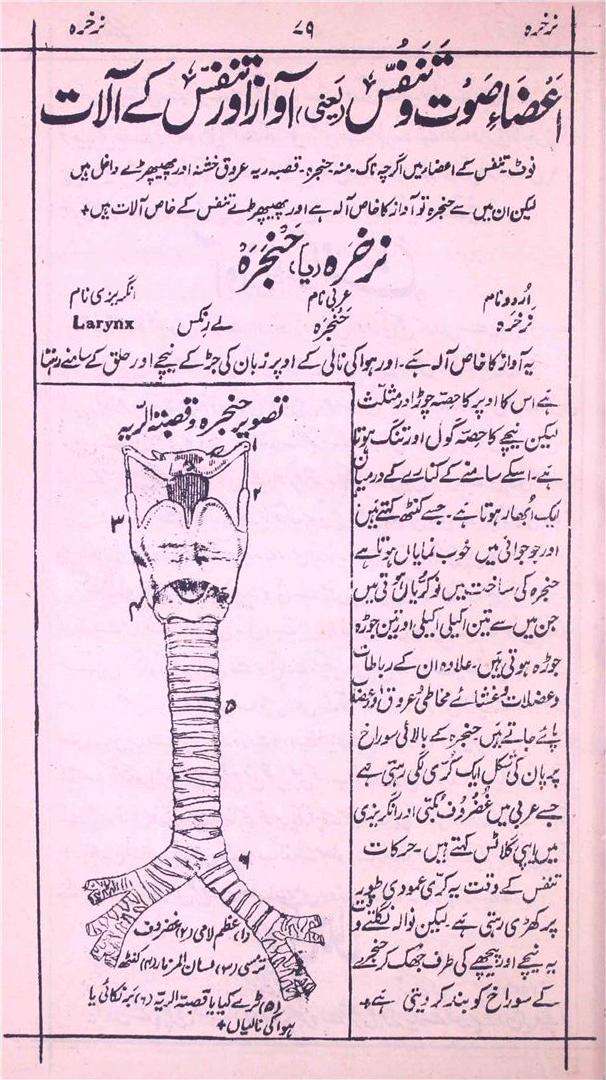 نرخرہ ۷۹ نرخرہ
اَعْضَاءِ صَوت و تَنَفُّس (یَعنی) آواز اور تنفّس کے آلات
نوٹ۔ تنفس کے اعضا میں اگرچہ ناک۔ منہ۔ حنجرہ۔ قصبہ ریہ عروق خشنہ اور پھیپھڑے داخل ہیں
لیکن ان میں سے حنجرہ تو آواز کا خاص آلہ ہے اور پھیپھڑے تنفس کے خاص آلات ہیں+
نرخرہ (یا) حَنجَرَہ
اُردو نام عربی نام انگریزی نام
نرخرَہ حَنجَرَہ لے رِنکس Larynx
یہ آواز کا خاص آلہ ہے۔ اور ہوا کی نالی کے اوپر زبان کی جڑ کے نیچے اور حلق کے سامنے رہتا
ہے اس کا اوپر کا حصہ چوڑا اور مثلّث
لیکن نیچے کا حصّہ گول اور تنگ ہوتا
ہے۔ اسکے سامنے کے کنارے کے درمیان
ایک اُبھار ہوتا ہے۔ جسے کنٹھ کہتے ہیں
اور جو جوانی میں خوب نمایاں ہوتا ہے
حنجرہ کی ساخت میں نو کُرّیاں ہوتی ہیں
جن میں سے تین اکیلی اکیلی اور تین جوڑہ
جوڑہ ہوتی ہیں۔ علاوہ ان کے رباطات
و عضلات و غشائے مخاطی و عروق و اعصاب
پائے جاتے ہیں حنجرہ کے بالائی سوراخ
پر پان کی شکل ایک کُرّی لگی رہتی ہے
جسے عربی میں غُضرُوف مُکبّی اور انگریزی
میں ایپی گلاٹس کہتے ہیں۔ حرکات
تنفس کے وقت یہ کُرّی عمودی طور
پر کھڑی رہتی ہے۔ لیکن نوالہ نگلتے وقت
یہ نیچے اور پیچھے کی طرف جھک کر حنجرے
کے سوراخ کو بند کر دیتی ہے+
تصویر حنجرہ و قصبتہ الریہ
۱
۲
۳
۴
۵
۶
(۱) عظم لامی (۲) غضروف
ترسی (۳) لسان المزمار (۴) کنٹھ
(۵) ٹرے کیا یا قصبتہ الریہ (۶) برنکائی یا
ہوا کی نالیاں+